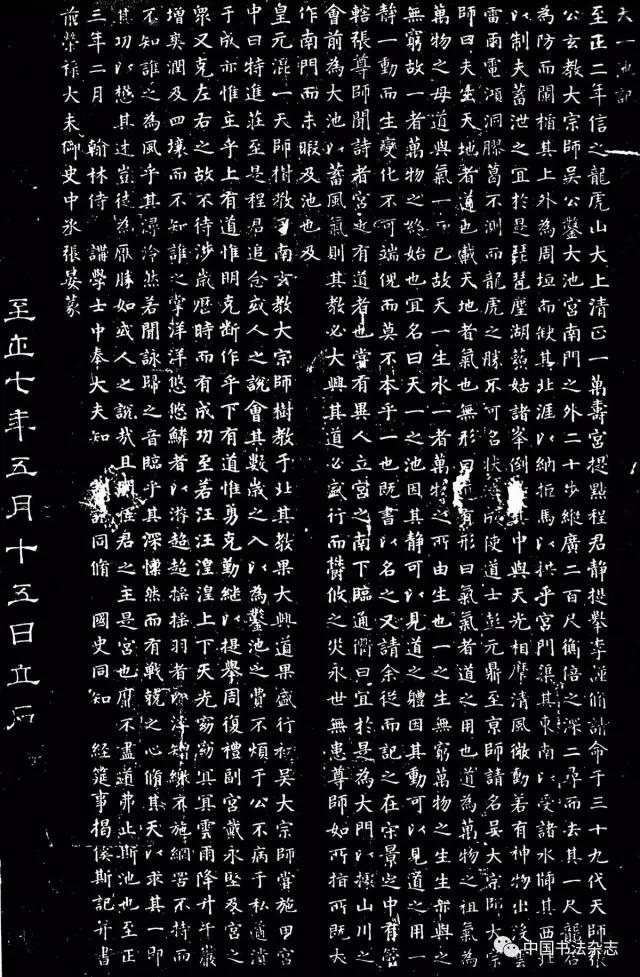 天一池記
至正二年信之龍虎山大上清正一萬壽宮提點程君靜提舉李謹脩請命于三十九代天師張
公玄教大宗師吳公鑿大池宮南門之外二十步縱廣二百尺衡倍之深二尋而去其一尺龍石
為防而闌楯其上外為周垣而缺其北涯以納拒馬以拱乎宮門渠其東南以受諸水師其西
以制夫蓄泄之宜於是琵琶塵湖藐姑諸峯倒其中與天光相摩清風微動若有神物出沒雲
雷雨電澒洞膠葛不測而龍虎之勝不可名狀成使道士彭元鼎至京師請名吳大宗師大宗
師曰夫生天地者道也載天地者氣也無形曰有形曰氣氣者道之用也道為萬物之祖氣為
萬物之母道與氣一而已故天一生水一者萬物之所由生也一之生無窮萬物之生生亦與之
無窮故一者萬物之終始也宜名曰天一之池因其靜可以見道之體因其動可以見道之用一
靜一動而生變化不可端倪而莫不本乎一也既書以名之又請余從而記之在宋景定中有管
轄張尊師聞詩者宮之有道者也嘗有異人立宮之南下臨通衢曰宜於是為大門以挹山川之
會前為大池以蓄風氣則其教必大興其道必盛行而鬱攸之災永世無患尊師如所指所既大
作南門而未暇及池也及
皇元混一天師樹教于南玄教大宗師樹教于北其教果大興道果盛行初吳大宗師嘗施田宮
中曰特進莊至是程君追念或人之說會其數歲之入以為鑿池之費不煩于公不病于私適潰
于成亦惟立乎上有道惟明克斷作乎下有道惟勇克勤繼以提舉周復禮副宮戴永堅及宮之
眾又克左右之故不待涉歲歷時而有成功至若汪汪湟湟上下天光窈窈冥冥雲雨降升千巖
增爽潤及四壤而不知誰之掌洋洋悠悠鱗者以游趯趯揺揺羽者知繳不施網罟不持而
不知誰之為風乎其潯泠然若聞詠歸之音臨乎其深慄然而有戰兢之心脩其天以求其一即
其功以懋其迬豈徒為厭勝如或人之說哉且程君之主是宮也靡不盡道弗止斯池也至正
三年二月 翰林侍 講學士中奉大夫知 制誥同脩 國史同知 經筵事揭傒斯記并書
前榮祿大夫御史中丞張晏篆
至正七年五月十五日立石
中国书法杂志